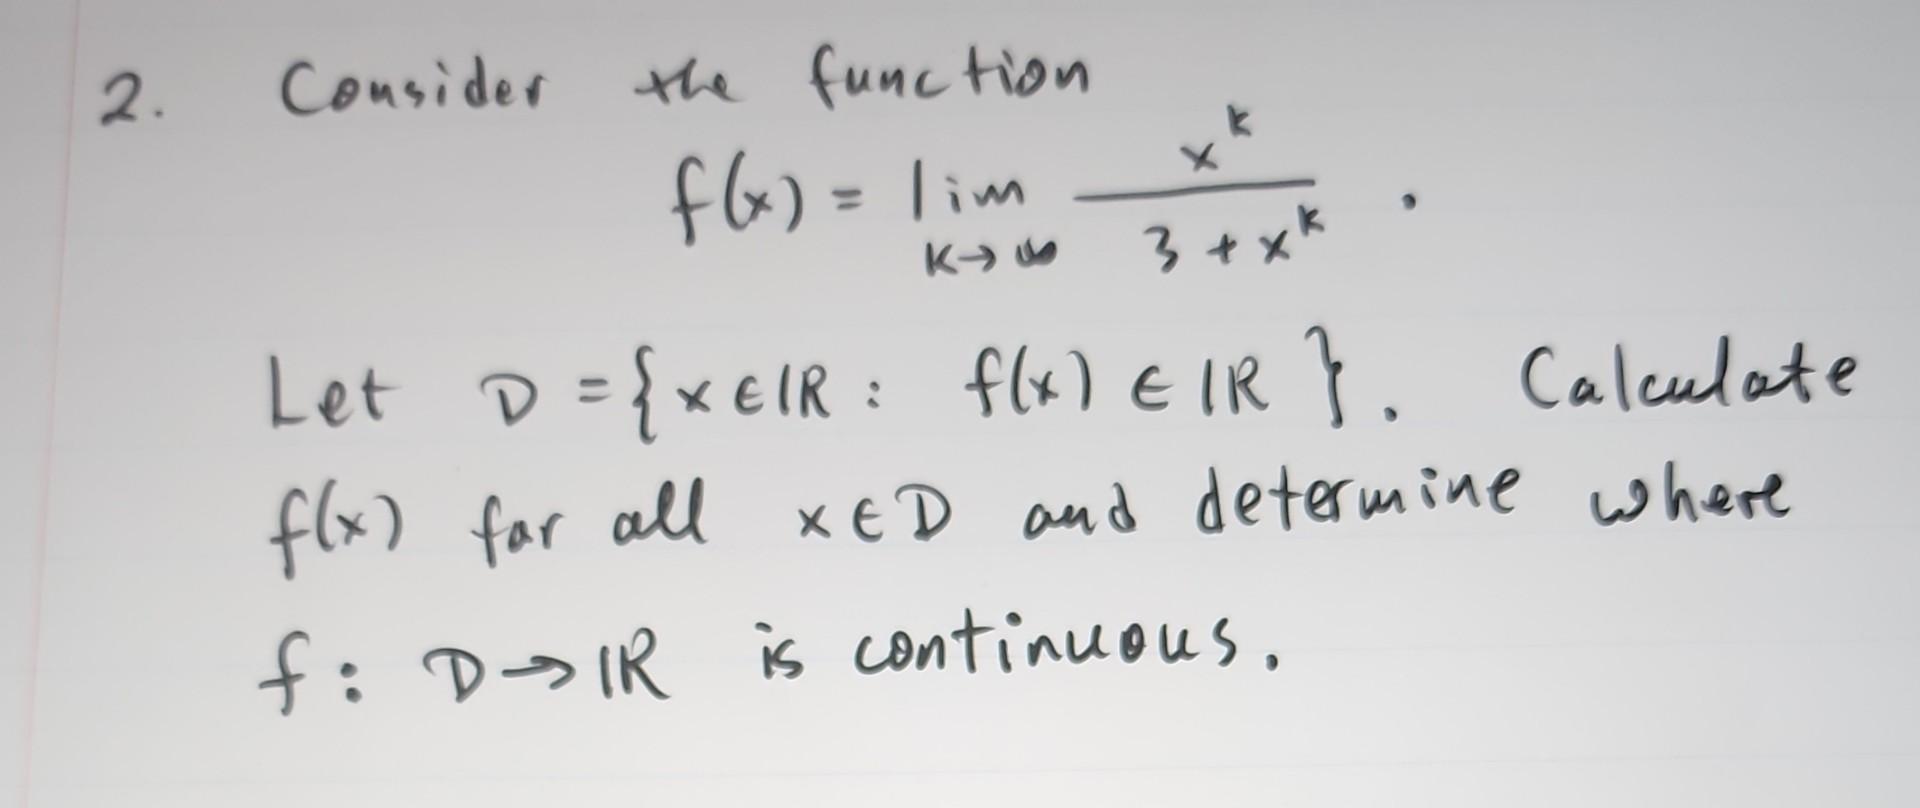 2. Consider the function
f(x) = lim_{k→∞} x^k / (3 + x^k) .
Let D = {x ∈ ℝ : f(x) ∈ ℝ }. Calculate
f(x) for all x ∈ D and determine where
f : D → ℝ is continuous.